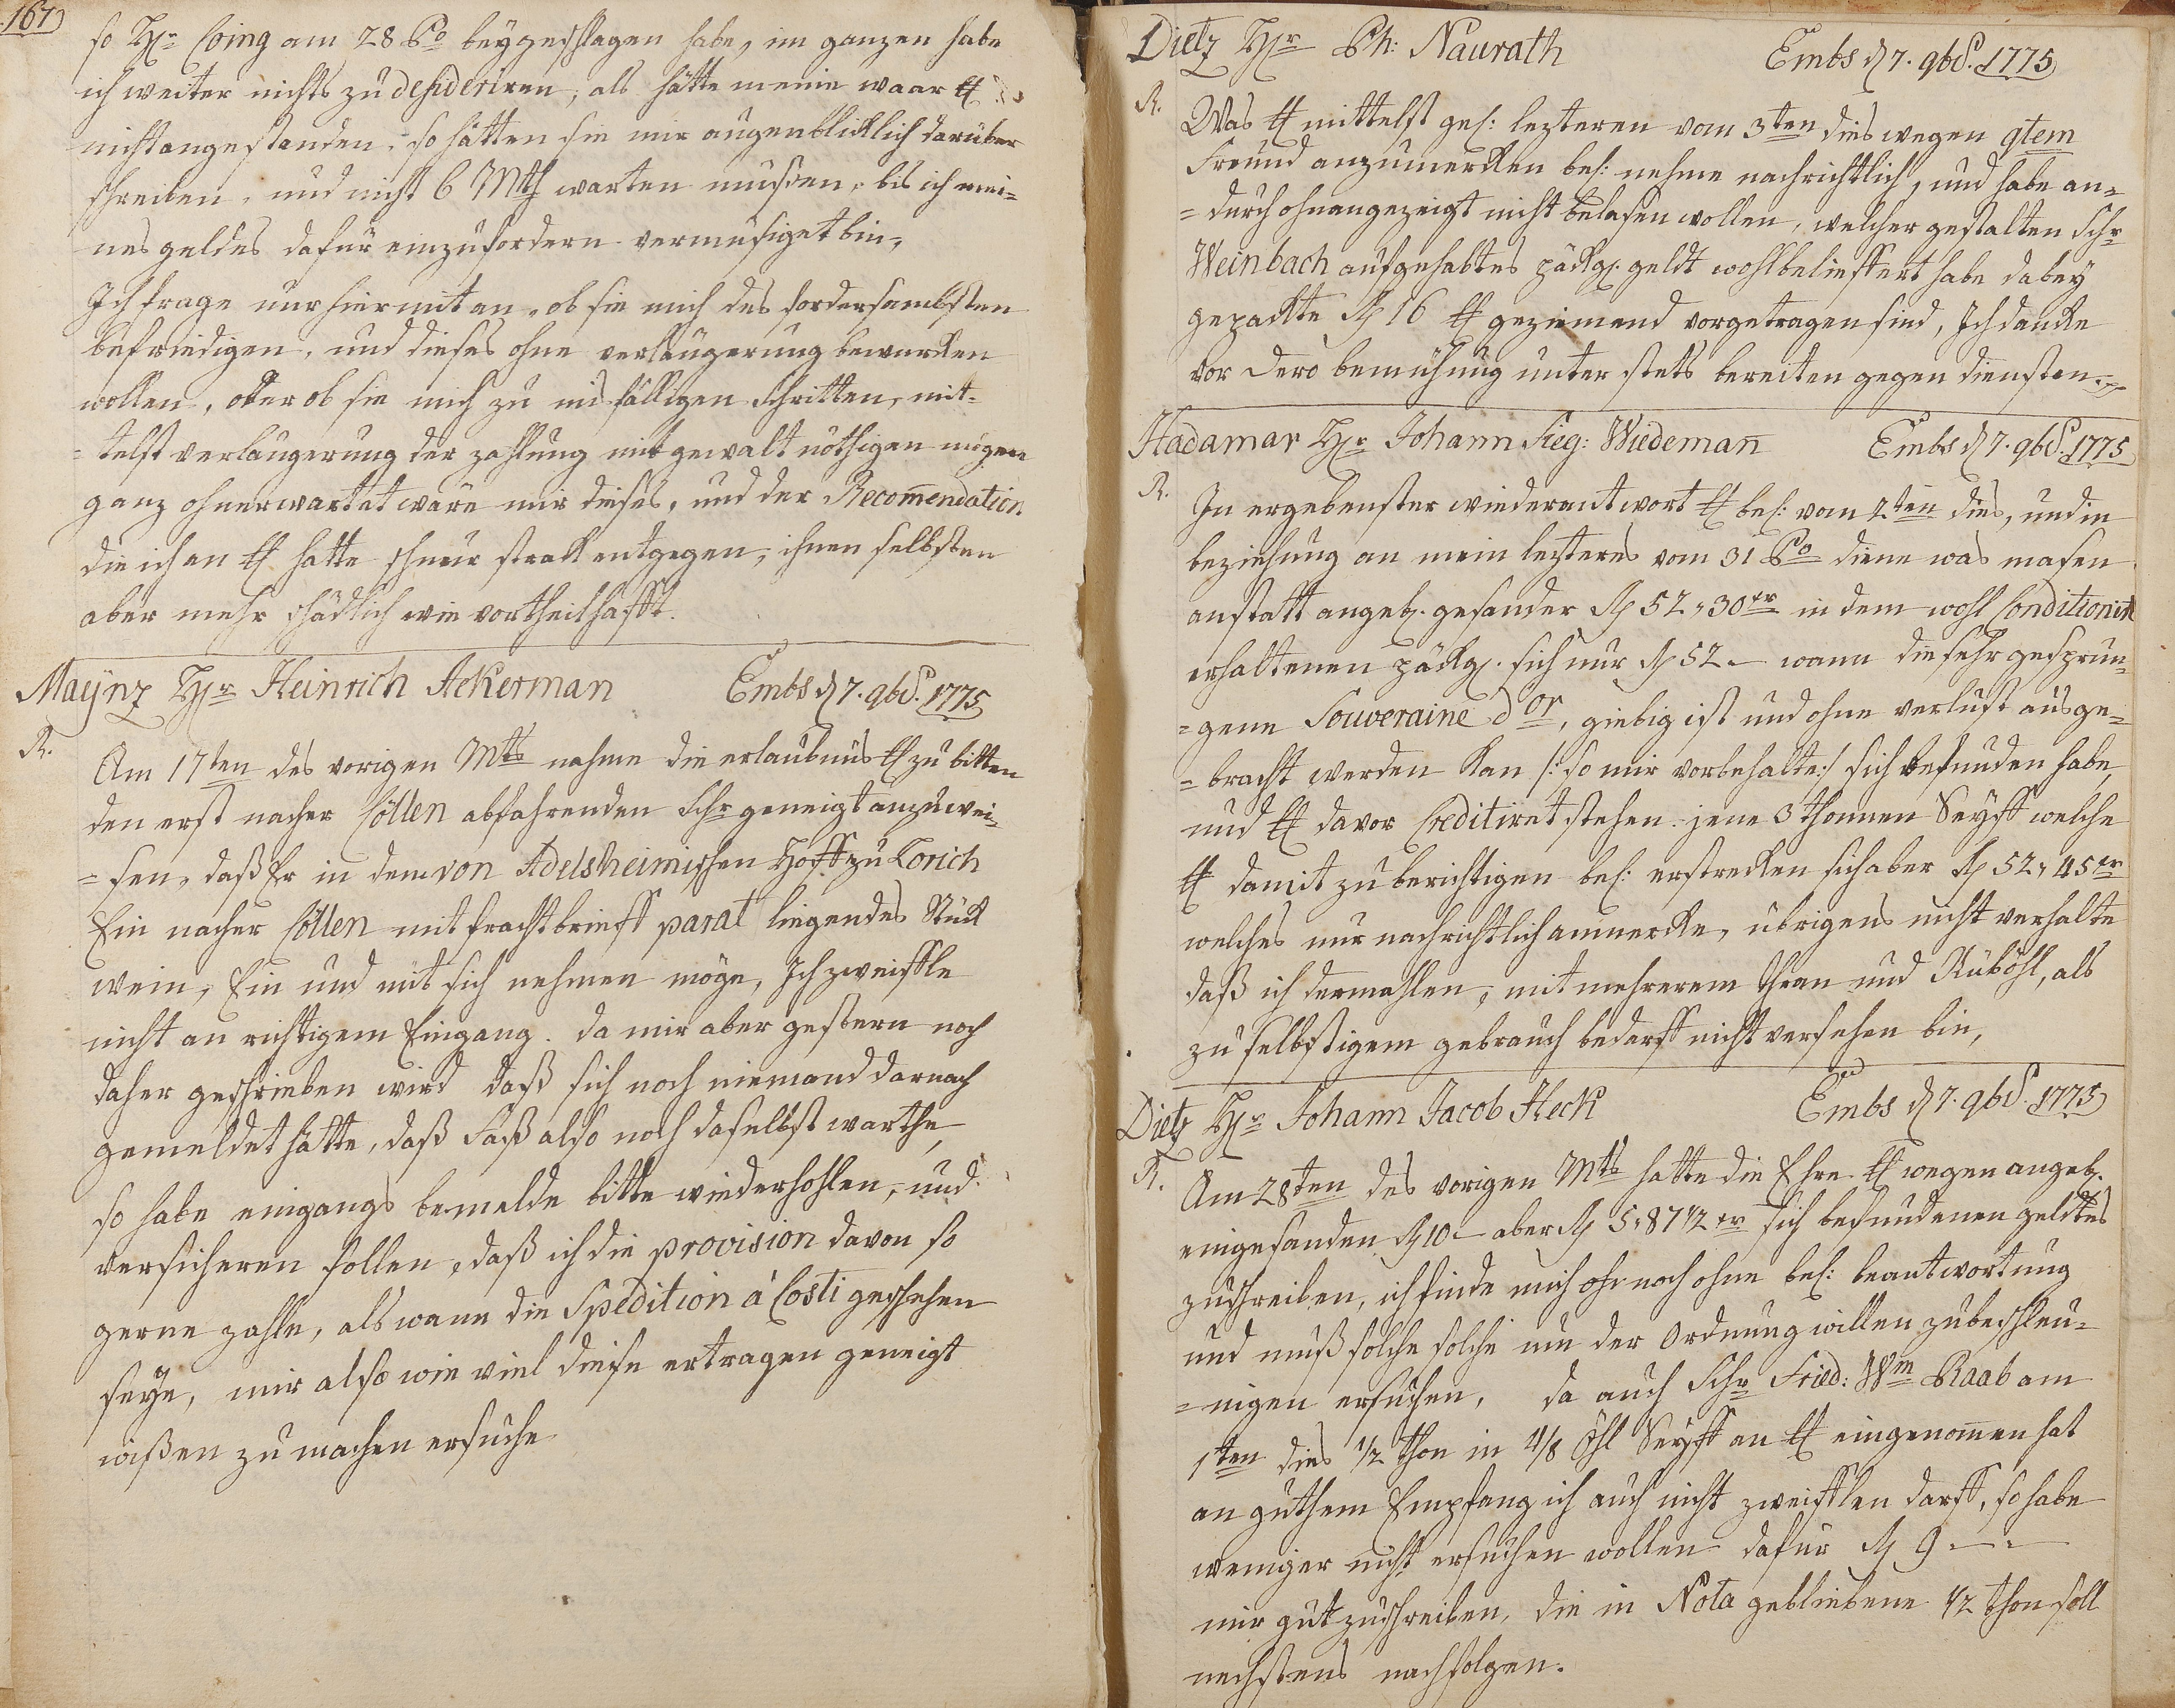 167
so Hr. Coing am 28 Po beygeschlagen habe, im ganzen habe
ich weiter nichts zu desideriren, als hätte meine waar
nicht angestanden, so hätten sie mir augenblicklich darüber
schreiben, und nicht 6 Mth warten müßen, bis ich mei-
nes geldes dafür einzufordern vermüsiget bin,
Ich frage nur hiermit an, ob sie mich des fordersambsten
befriedigen, und dieses ohne verlängerung bewurcken
wollen, oder ob sie mich zu misfälligen schritten, mit-
=telst verlängerung der zahlung mit gewalt nöthigen mögen
ganz ohnerwartet wäre mir dieses, und der Recom̅endation
die ich an hatte schnur strack entgegen, ihnen selbsten
aber mehr schädlich wie vortheilhafft.
Maÿnz Hr Heinrich Ackerman Embs d 7. 9bs. 1775
R.
Am 17ten des vorigen Mts nahme die erlaubnus zu bitten
den erst nacher Cöllen abfahrenden Schr geneigt anzuwei-
=sen, daß Er in dem von Adelsheimischen Hoff zu Lorich
Ein nacher Cöllen mit frachtbrieff parat liegendes Stück
wein, Ein und mit sich nehmen möge, Ich zweiffle
nicht an richtigem Eingang. da mir aber gestern noch
daher geschrieben wird daß sich noch niemand darnach
gemeldet hätte, daß faß also noch daselbst warthe,
so habe eingangs bemelde bitte wiederhohlen, und
versicheren sollen, daß ich die provision davon so
gerne zahle, als wann die Spedition à Costi geschehen
seÿe, mir also wie viel diese ertragen geneigt
wißen zu machen ersuche
Dietz Hr Ph: Naurath Embs d 7. 9bs. 1775
R.
Was mittelst gef: lezteren vom 3ten dies wegen qtem
Freund anzumercken bel: nehme nachrichtlich, und habe an-
=durch ohnangezeigt nicht belasen wollen, welcher gestalten Schr
Weinbach aufgehabtes päckg. geldt wohl belieffert habe dabey
gepackte 16 geziemend vorgetragen sind, Ich dancke
vor dero bemühung unter stets bereiten gegen diensten
Hadamar Hr Johann Sieg: Wiedeman̅ Embs d 7. 9bs. 1775
R.
In ergebenster wiederantwort bel: vom 2ten dies, und in
beziehung an mein lezteres vom 31 Po diene was masen
anstatt angeb. gesander 52, 30 xr in dem wohl Conditionirt
erhaltenen päckg. sich nur 52 – wann die sehr gesprun-
=gene Souveraine d'or, giebig ist und ohne verlust ausge-
=bracht werden kan /: so mir vorbehalte :/ sich befunden habe,
und davor Creditiret stehen. jene 3 thonnen Seyff welche
damit zu berichtigen bel: erstrecken sich aber 52, 45 xr
welches nur nachrichtlich anmercke, übrigens nicht verhalte
daß ich dermahlen, mit mehrerem thran und Ruböhl, als
zu selbstigem gebrauch bedarff nicht versehen bin,
Dietz Hr Johann Jacob Heck Embs d 7. 9bs. 1775
R.
Am 28ten des vorigen Mts hatte die Ehre wegen angeb.
eingesanden 10 – aber 5, 87 1/2 xr sich befundenen geldtes
zuschreiben, ich finde mich ohr noch ohne bel: beantwortung
und muß solche solche um der Ordnung willen zubeschleu-
=nigen ersuchen, da auch Schr Fried: Wm Raab am
1ten dies 1/2 thon in 4/8 Öhl Seyff an eingenom̅en hat
an guthem Empfang ich auch nicht zweifflen darff, so habe
weniger nicht ersuchen wollen dafür 9 – –
mir gut zuschreiben, die in Nota gebliebene 1/2 thon soll
nechstens nachfolgen.